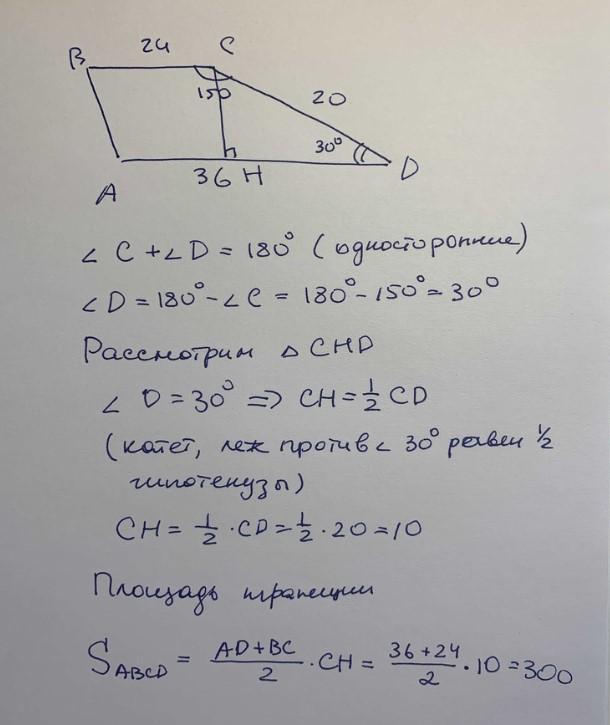 24
B C
150
20
30°
36 H
A D
∠ C + ∠ D = 180° (односторонние)
∠ D = 180° - ∠ C = 180° - 150° = 30°
Рассмотрим △ CHD
∠ D = 30° ⇒ CH = 1/2 CD
(катет, леж против ∠ 30° равен 1/2
гипотенузы)
CH = 1/2 · CD = 1/2 · 20 = 10
Площадь трапеции
S ABCD = AD+BC/2 · CH = 36+24/2 · 10 = 300